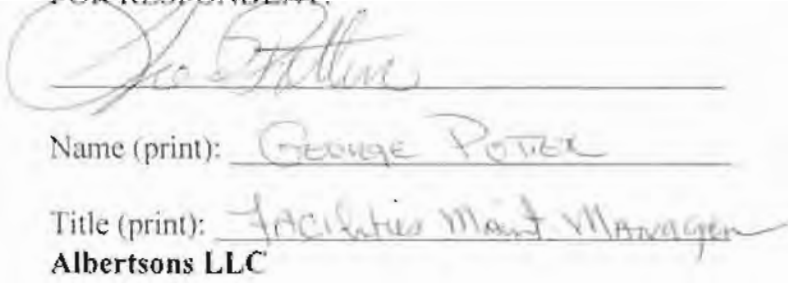 FOR RESPONDENT:
Name (print): George Potter
Title (print): Facilities Maint. Manager
Albertsons LLC